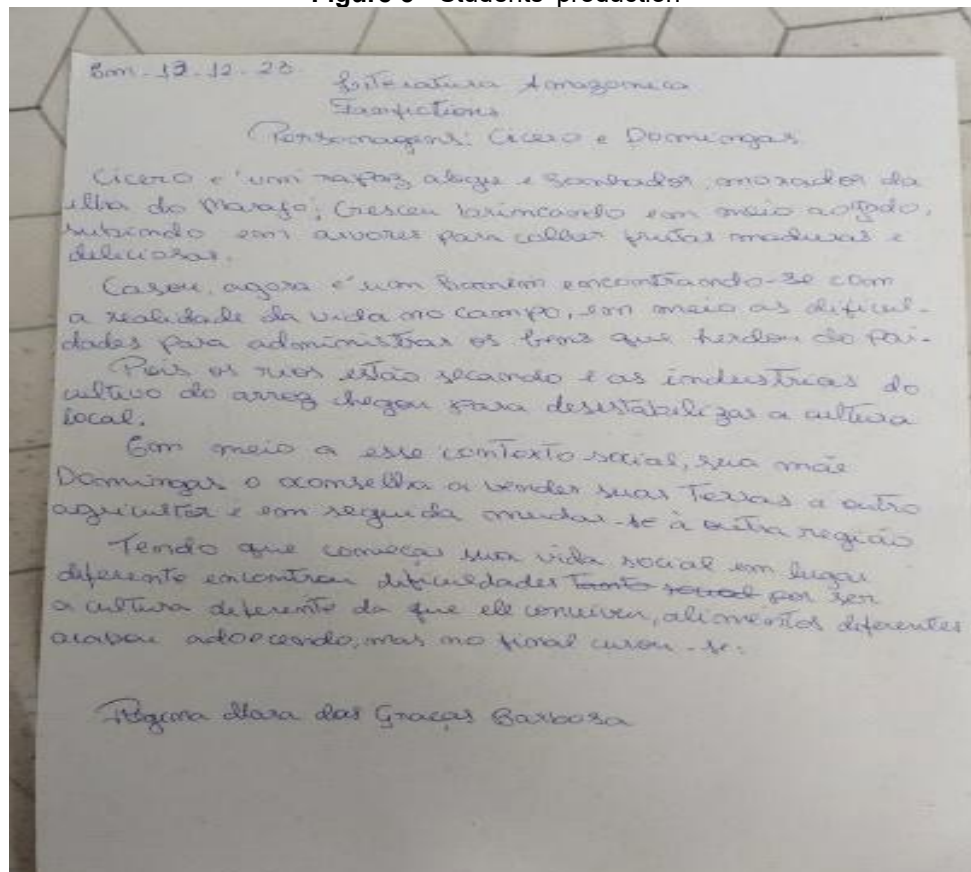 Figure 3 - Students' production
Em. 13.12.23.
Literatura Amazonica
Fanfictions
Personagens: Cicero e Domingas
Cicero e' um rapaz alegre e sonhador, morador da
ilha do Marajo, Cresceu brincando em meio ao gado,
subindo em arvores para colher frutas maduras e
deliciosas.
Casou, agora e' um homem encontrando-se com
a realidade da vida no campo, em meio as dificul-
dades para administrar os bens que herdou do Pai.
Pois os rios estão secando e as industrias do
cultivo do arroz chegou para desestabilizar a cultura
local.
Em meio a esse contexto social, sua mãe
Domingas o aconselha a vender suas Terras a outro
agricultor e em seguida mudar-se à outra região
Tendo que começar sua vida social em lugar
diferente encontrou dificuldades tanto social por ser
a cultura diferente da que ele conviveu, alimentos diferentes
acabou adoecendo, mas no final curou-se.
Mara das Graças Barbosa